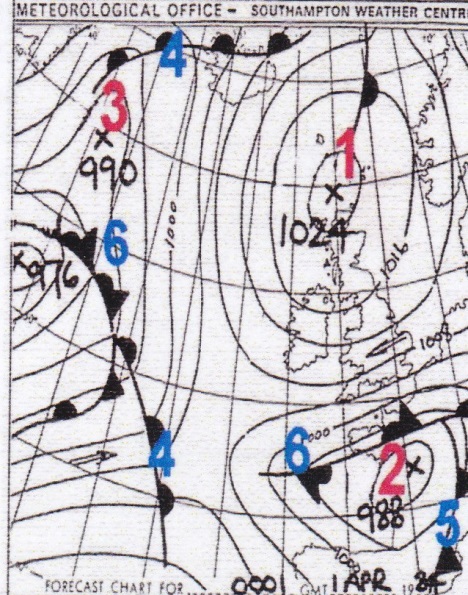 METEOROLOGICAL OFFICE - SOUTHAMPTON WEATHER CENTR
4
3
990
1
1024
1000
1016
6
976
100
4
6
000
2
988
5
100
FORECAST CHART FOR 0001 GMT 1 APR 1984